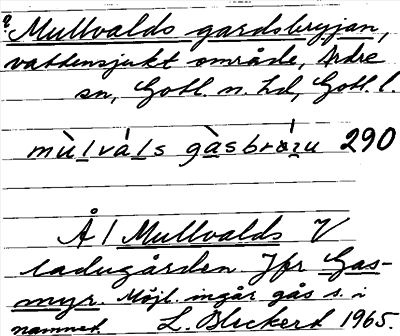 Mullvalds gardsbryjan,
vattensjukt område, Ardre
sn, Gotl. n. hd, Gotl. l.
mùlváls gàsbrøizu 290
Å / Mullvalds V
ladugården. Jfr Gas-
myr. Möjl. ingår gås s. i
namnet. L. Bleckert 1965.